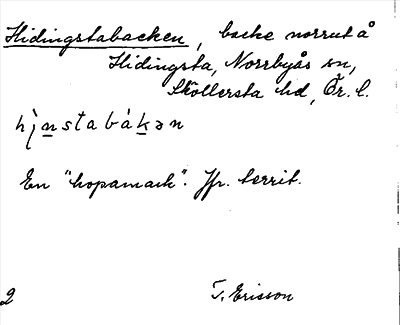 Hidingstabacken, backe norrut å
Hidingsta, Norrbyås sn,
Sköllersta hd, Ör. l.
hi̖nstabákən
En "hopamark". Jfr. territ.
2 T. Ericson